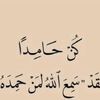 كُنْ حَامِدًا
فَقَدْ- سَمِعَ اللهُ لِمَنْ حَمِدَهُ